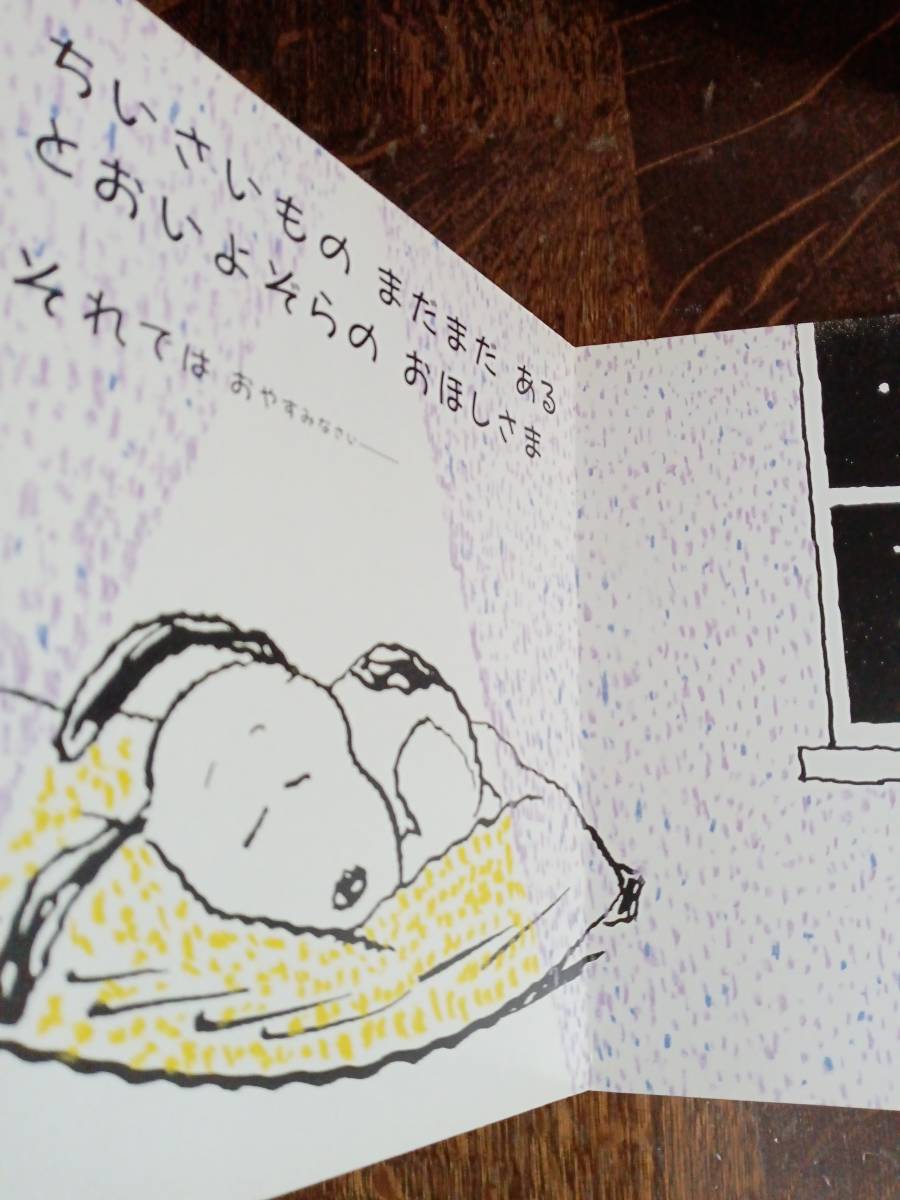 ちいさいもの まだまだ ある
とおいよぞらの おほしさま
それでは おやすみなさい──